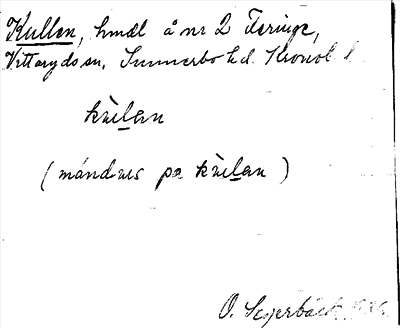 Kullen, hmdl å nr 2 Feringe,
Vittaryds sn. Sunnerbo hd. Kronob. l.
kùlan
(mándus pa kùlan)
O. Segerbäck